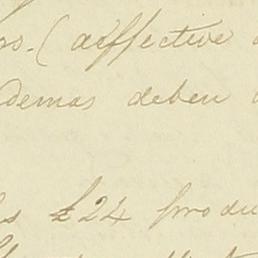 os. (aeffective
demas deben
s £24 produ